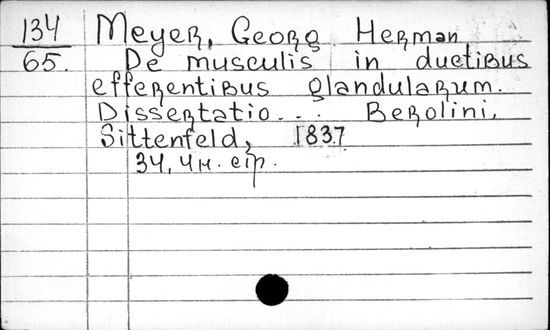 134
65.
Meyer, Georg Herman
De musculis in ductibus
efferentibus glandularum.
Dissertatio... Berolini,
Sittenfeld, 1837
34, 4н. стр.